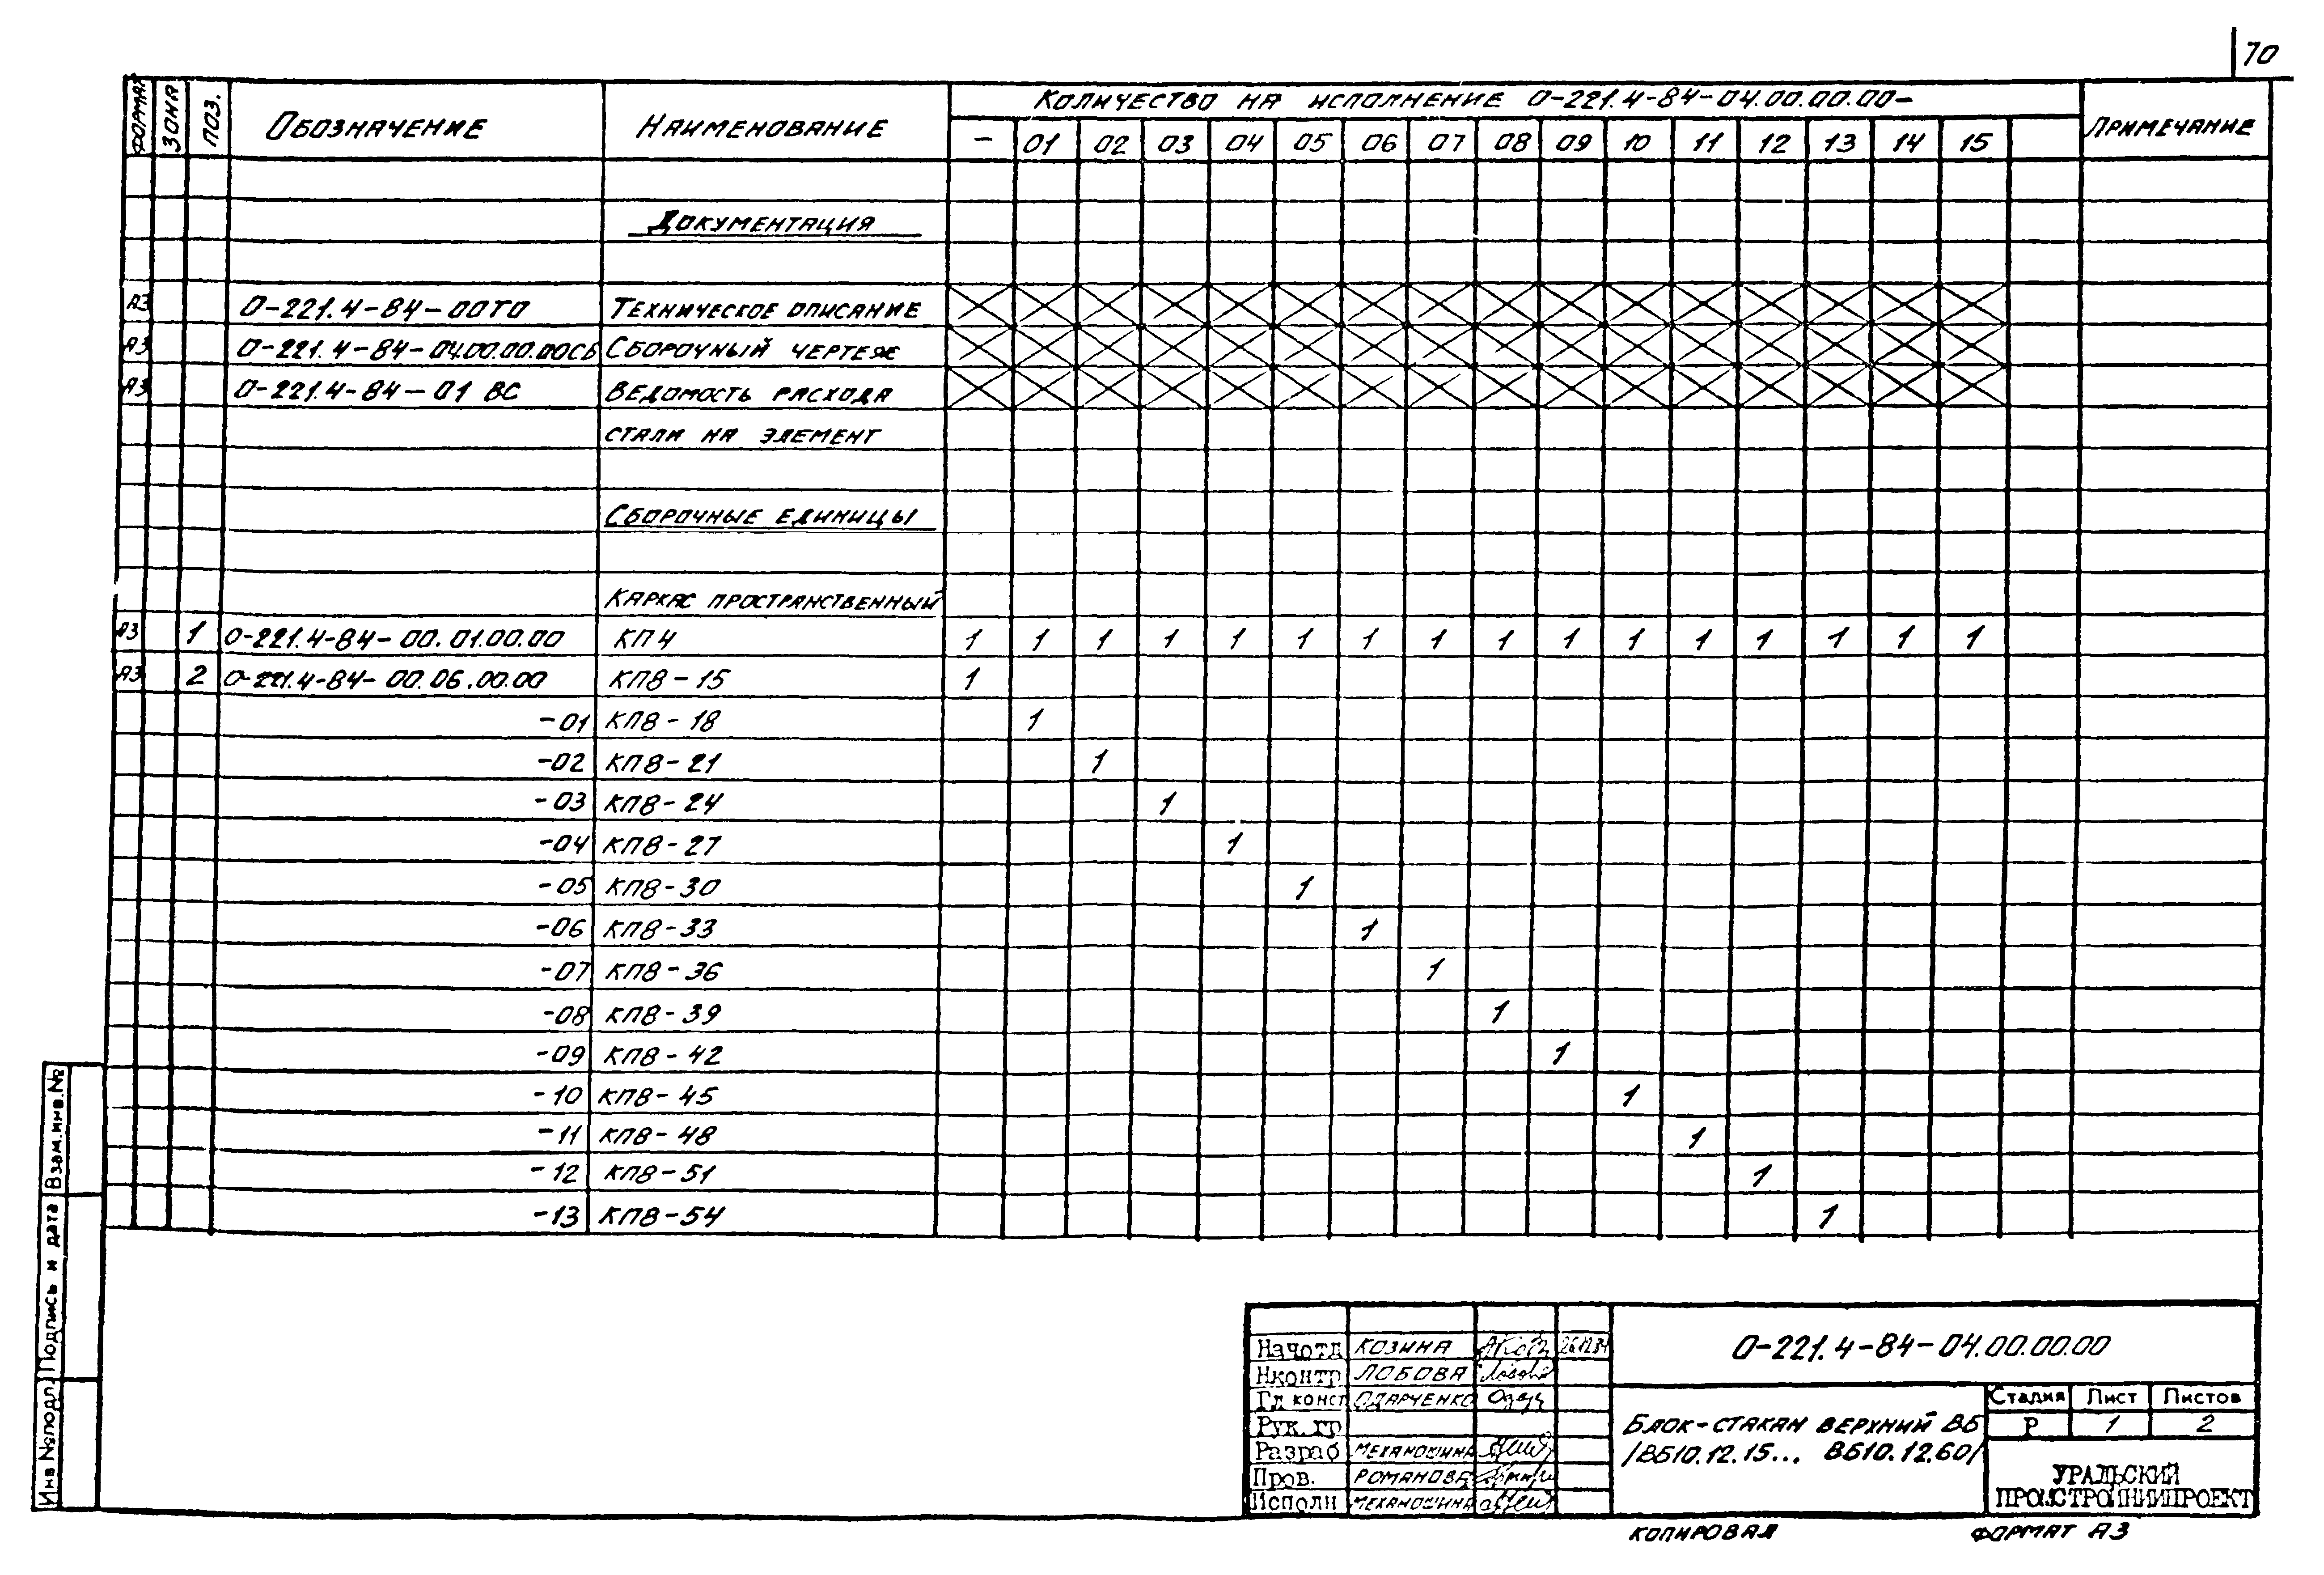 70
ФОРМАТ ЗОНА ПОЗ. ОБОЗНАЧЕНИЕ НАИМЕНОВАНИЕ КОЛИЧЕСТВО НА ИСПОЛНЕНИЕ О-221.4-84-04.00.00.00- ПРИМЕЧАНИЕ
- 01 02 03 04 05 06 07 08 09 10 11 12 13 14 15
ДОКУМЕНТАЦИЯ
А3 О-221.4-84-00ТО ТЕХНИЧЕСКОЕ ОПИСАНИЕ
А3 О-221.4-84-04.00.00.00СБ СБОРОЧНЫЙ ЧЕРТЕЖ
А3 О-221.4-84-01 ВС ВЕДОМОСТЬ РАСХОДА
СТАЛИ НА ЭЛЕМЕНТ
СБОРОЧНЫЕ ЕДИНИЦЫ
КАРКАС ПРОСТРАНСТВЕННЫЙ
А3 1 О-221.4-84-00.01.00.00 КП4 1 1 1 1 1 1 1 1 1 1 1 1 1 1 1 1
А3 2 О-221.4-84-00.06.00.00 КП8-15 1
-01 КП8-18 1
-02 КП8-21 1
-03 КП8-24 1
-04 КП8-27 1
-05 КП8-30 1
-06 КП8-33 1
-07 КП8-36 1
-08 КП8-39 1
-09 КП8-42 1
-10 КП8-45 1
-11 КП8-48 1
-12 КП8-51 1
-13 КП8-54 1
Взам.инв.№
Подпись и дата
Инв №подл.
Начотд КОЗИНА
Нконтр ЛОБОВА
Гл конст ОДАРЧЕНКО
Рук. гр
Разраб МЕХАНОШИНА
Пров. РОМАНОВА
Исполн МЕХАНОШИНА
О-221.4-84-04.00.00.00
БЛОК-СТАКАН ВЕРХНИЙ ВБ
/ВБ10.12.15... ВБ10.12.60/
Стадия Лист Листов
Р 1 2
УРАЛЬСКИЙ
ПРОМСТРОЙНИИПРОЕКТ
КОПИРОВАЛ ФОРМАТ А3